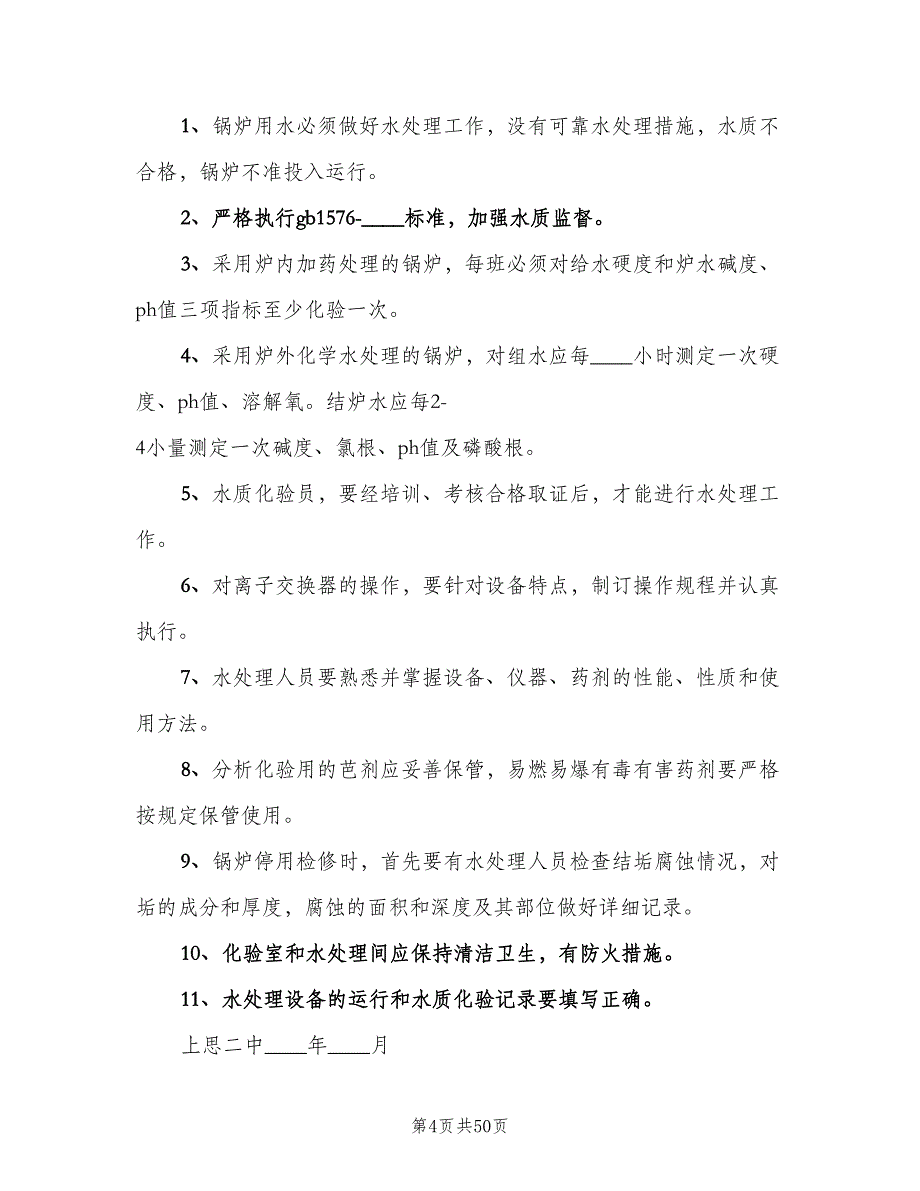 1、锅炉用水必须做好水处理工作，没有可靠水处理措施，水质不
合格，锅炉不准投入运行。
2、严格执行gb1576-____标准，加强水质监督。
3、采用炉内加药处理的锅炉，每班必须对给水硬度和炉水碱度、
ph值三项指标至少化验一次。
4、采用炉外化学水处理的锅炉，对组水应每____小时测定一次硬
度、ph值、溶解氧。结炉水应每2-
4小量测定一次碱度、氯根、ph值及磷酸根。
5、水质化验员，要经培训、考核合格取证后，才能进行水处理工
作。
6、对离子交换器的操作，要针对设备特点，制订操作规程并认真
执行。
7、水处理人员要熟悉并掌握设备、仪器、药剂的性能、性质和使
用方法。
8、分析化验用的芭剂应妥善保管，易燃易爆有毒有害药剂要严格
按规定保管使用。
9、锅炉停用检修时，首先要有水处理人员检查结垢腐蚀情况，对
垢的成分和厚度，腐蚀的面积和深度及其部位做好详细记录。
10、化验室和水处理间应保持清洁卫生，有防火措施。
11、水处理设备的运行和水质化验记录要填写正确。
上思二中____年____月
第4页共50页